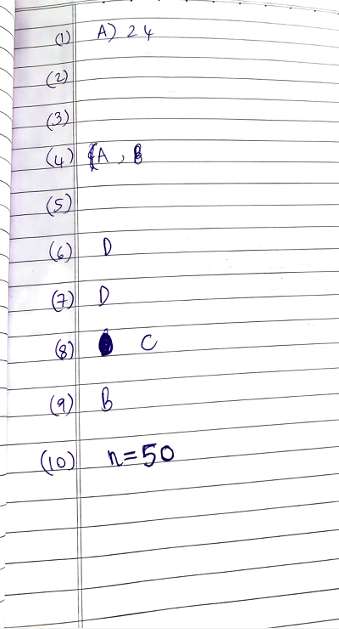 (1) A) 24
(2)
(3)
(4) A, B
(5)
(6) D
(7) D
(8) C
(9) B
(10) n=50